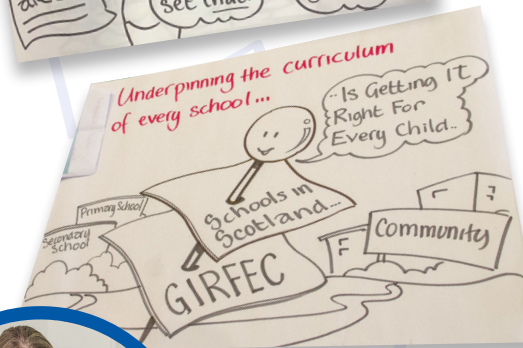 see that
Underpinning the curriculum
of every school...
..Is Getting It
Right For
Every Child..
Schools in
Scotland...
Primary School
Secondary
School
GIRFEC
Community